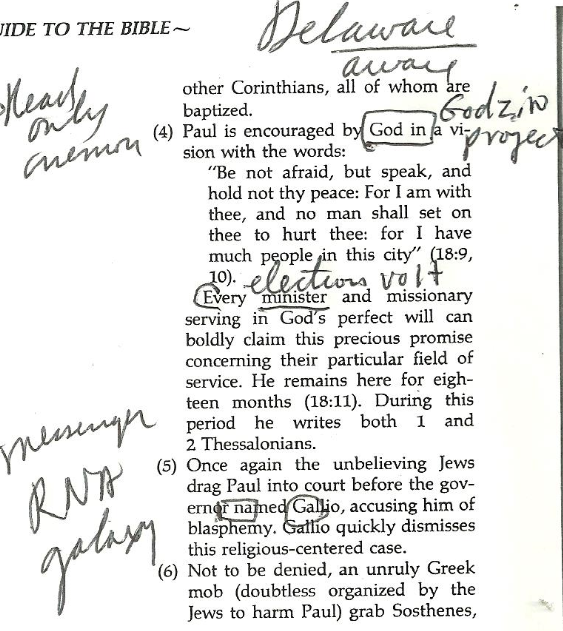 UIDE TO THE BIBLE~
Delaware
aware
other Corinthians, all of whom are
baptized.
Godzin
project
only
(4) Paul is encouraged by God in a vi-
sion with the words:
"Be not afraid, but speak, and
hold not thy peace: For I am with
thee, and no man shall set on
thee to hurt thee: for I have
much people in this city" (18:9,
10).
election volt
Every minister and missionary
serving in God's perfect will can
boldly claim this precious promise
concerning their particular field of
service. He remains here for eigh-
teen months (18:11). During this
period he writes both 1 and
2 Thessalonians.
messenger
RNA
galaxy
(5) Once again the unbelieving Jews
drag Paul into court before the gov-
ernor named Gallio, accusing him of
blasphemy. Gallio quickly dismisses
this religious-centered case.
(6) Not to be denied, an unruly Greek
mob (doubtless organized by the
Jews to harm Paul) grab Sosthenes,